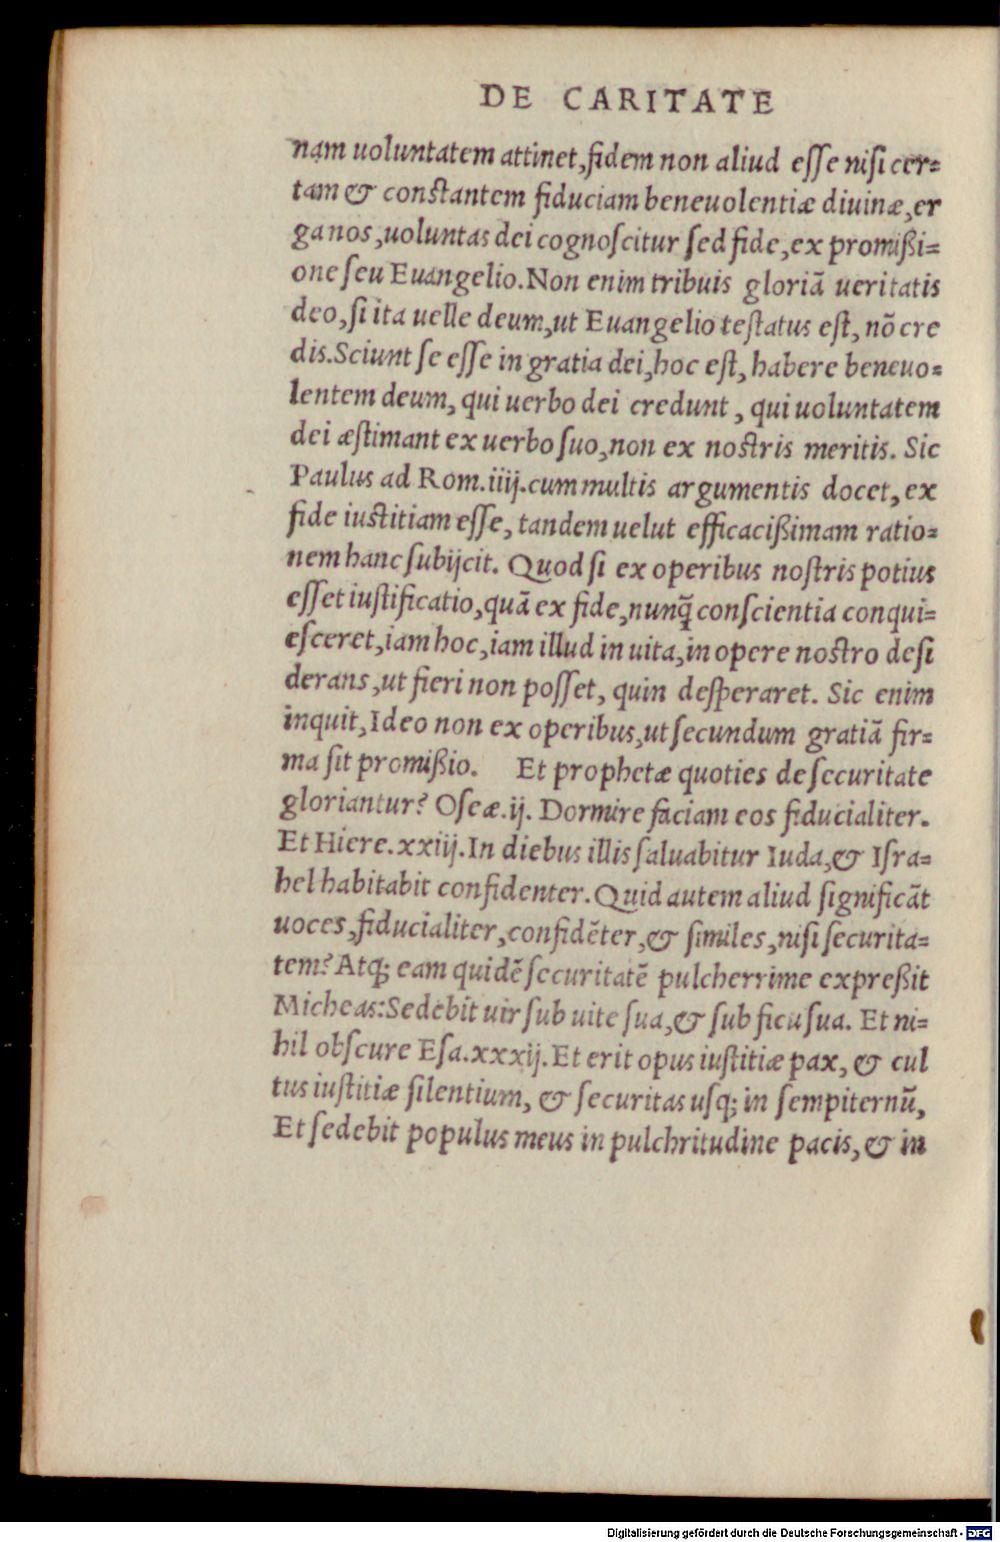 DE CARITATE
nam uoluntatem attinet, fidem non aliud esſe niſi cer=
tam & conſtantem fiduciam beneuolentiæ diuinæ, er
ga nos, uoluntas dei cognoſcitur ſed fide, ex promißi=
one ſeu Euangelio. Non enim tribuis gloriã ueritatis
deo, ſi ita uelle deum, ut Euangelio teſtatus eſt, nõ cre
dis. Sciunt ſe eſſe in gratia dei, hoc eſt, habere beneuo=
lentem deum, qui uerbo dei credunt, qui uoluntatem
dei æſtimant ex uerbo ſuo, non ex noſtris meritis. Sic
Paulus ad Rom. iiij. cum multis argumentis docet, ex
fide iuſtitiam eſſe, tandem uelut efficacißimam ratio=
nem hanc ſubijcit. Quod ſi ex operibus noſtris potius
eſſet iuſtificatio, quã ex fide, nunq̃ conſcientia conqui=
eſceret, iam hoc, iam illud in uita, in opere noſtro deſi
derans, ut fieri non poſſet, quin deſperaret. Sic enim
inquit, Ideo non ex operibus, ut ſecundum gratiã fir=
ma ſit promißio. Et prophetæ quoties de ſecuritate
gloriantur? Oſeæ. ij. Dormire faciam eos fiducialiter.
Et Hiere. xxiij. In diebus illis ſaluabitur Iuda, & Iſra=
hel habitabit confidenter. Quid autem aliud ſignificãt
uoces, fiducialiter, confidẽter, & ſimiles, niſi ſecurita=
tem? Atq; eam quidẽ ſecuritatẽ pulcherrime expreßit
Micheas: Sedebit uir ſub uite ſua, & ſub ficu ſua. Et ni=
hil obſcure Eſa. xxxij. Et erit opus iuſtitiæ pax, & cul
tus iuſtitiæ ſilentium, & ſecuritas uſq; in ſempiternũ,
Et ſedebit populus meus in pulchritudine pacis, & in
Digitalisierung gefördert durch die Deutsche Forschungsgemeinschaft - DFG